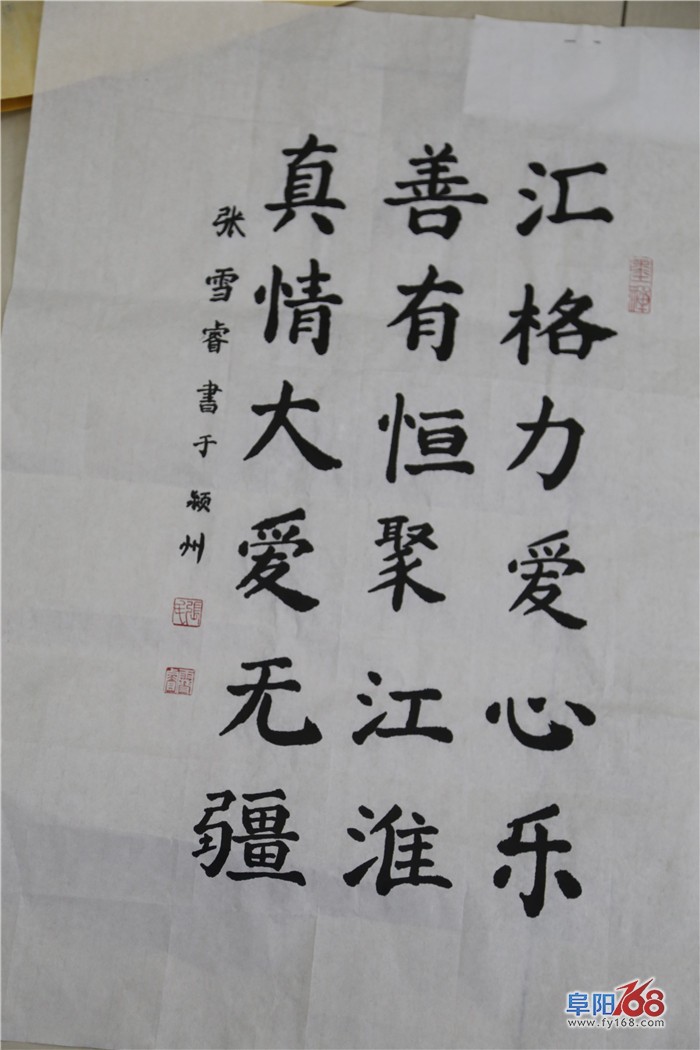 汇格力爱心乐
善有恒聚江淮
真情大爱无疆
张雪睿书于颍州
阜阳168
www.fy168.com